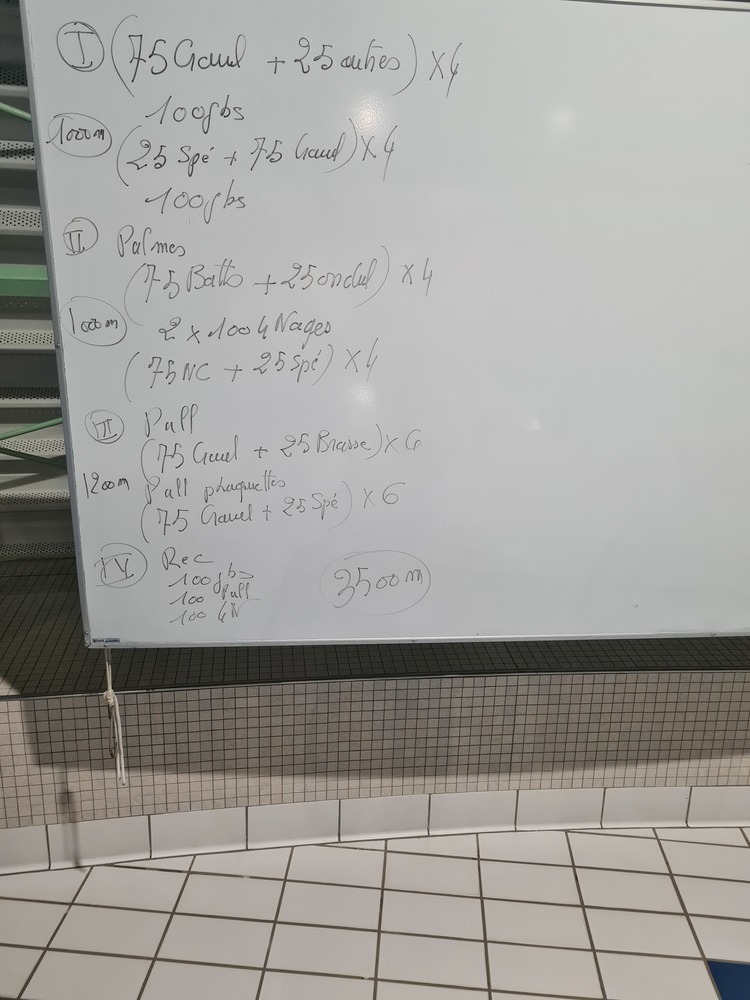 I (75 Crawl + 25 autres) x4
100 jbs
1000m (25 Spé + 75 Crawl) x4
100 jbs
II Palmes
(75 Batts + 25 ondul) x4
1000m 2 x 100 4 Nages
(75 NC + 25 Spé) x4
III Pull
(75 Crawl + 25 Brasse) x 6
1200m Pull plaquettes
(75 Crawl + 25 Spé) x 6
IV Rec
100 jbs
100 pull
100 4N
3500m